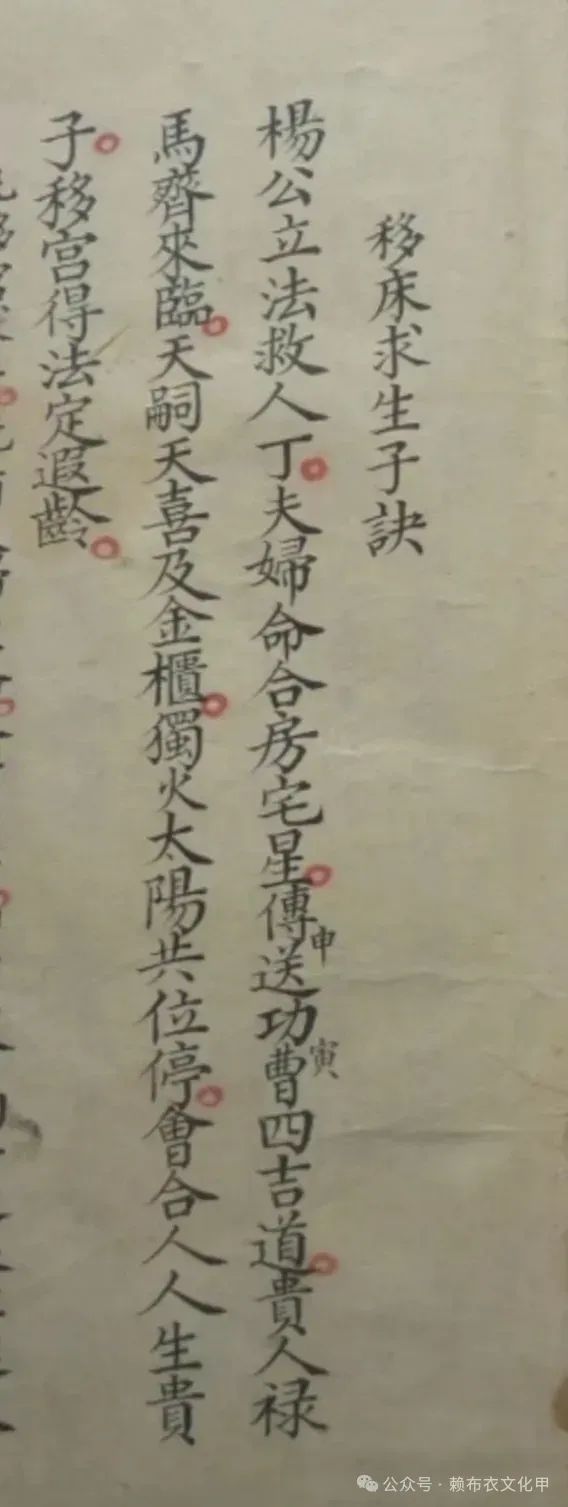 移床求生子訣
楊公立法救人丁。夫婦命合房宅星。傳送申功曹寅四吉道。貴人禄
馬齊來臨。天嗣天喜及金櫃。獨火太陽共位停。會合人人生貴
子。移宮得法定遐齡。
公众号·赖布衣文化甲